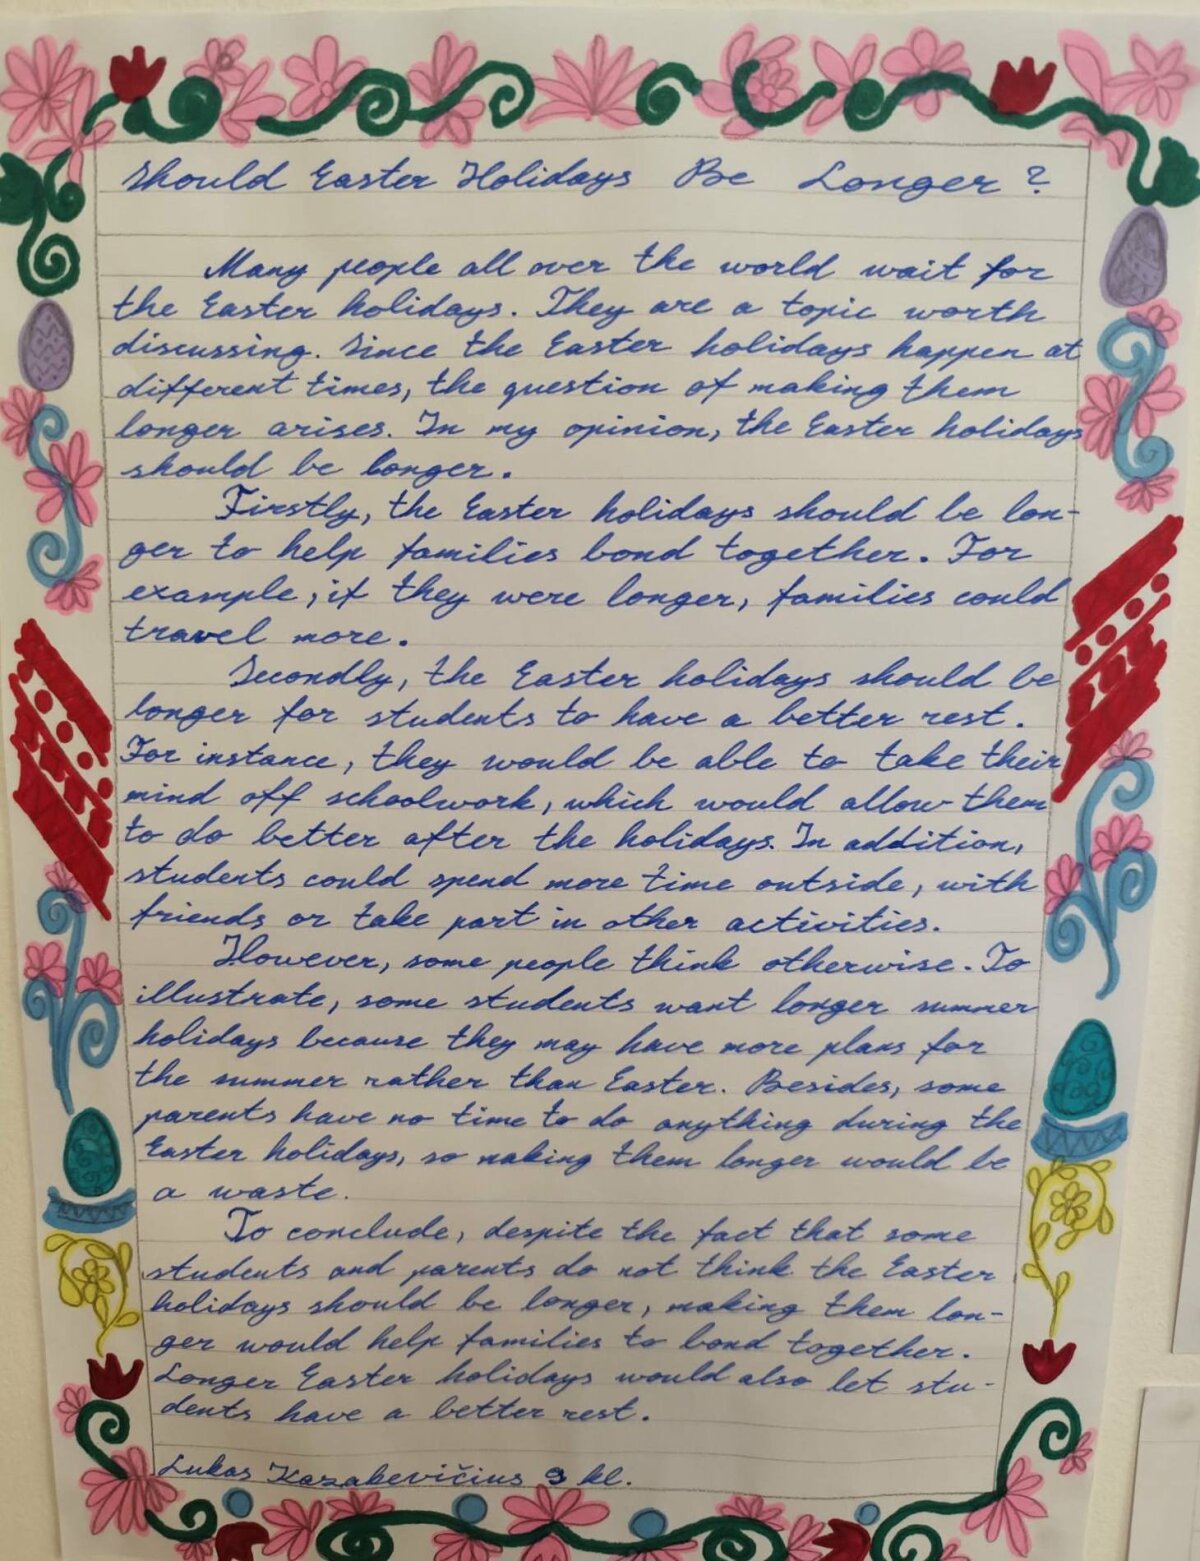 Should Easter Holidays Be Longer?
Many people all over the world wait for
the Easter holidays. They are a topic worth
discussing. Since the Easter holidays happen at
different times, the question of making them
longer arises. In my opinion, the Easter holidays
should be longer.
Firstly, the Easter holidays should be lon-
ger to help families bond together. For
example, if they were longer, families could
travel more.
Secondly, the Easter holidays should be
longer for students to have a better rest.
For instance, they would be able to take their
mind off schoolwork, which would allow them
to do better after the holidays. In addition,
students could spend more time outside, with
friends or take part in other activities.
However, some people think otherwise. To
illustrate, some students want longer summer
holidays because they may have more plans for
the summer rather than Easter. Besides, some
parents have no time to do anything during the
Easter holidays, so making them longer would be
a waste.
To conclude, despite the fact that some
students and parents do not think the Easter
holidays should be longer, making them lon-
ger would help families to bond together.
Longer Easter holidays would also let stu-
dents have a better rest.
Lukas Kazakevičius 9 kl.